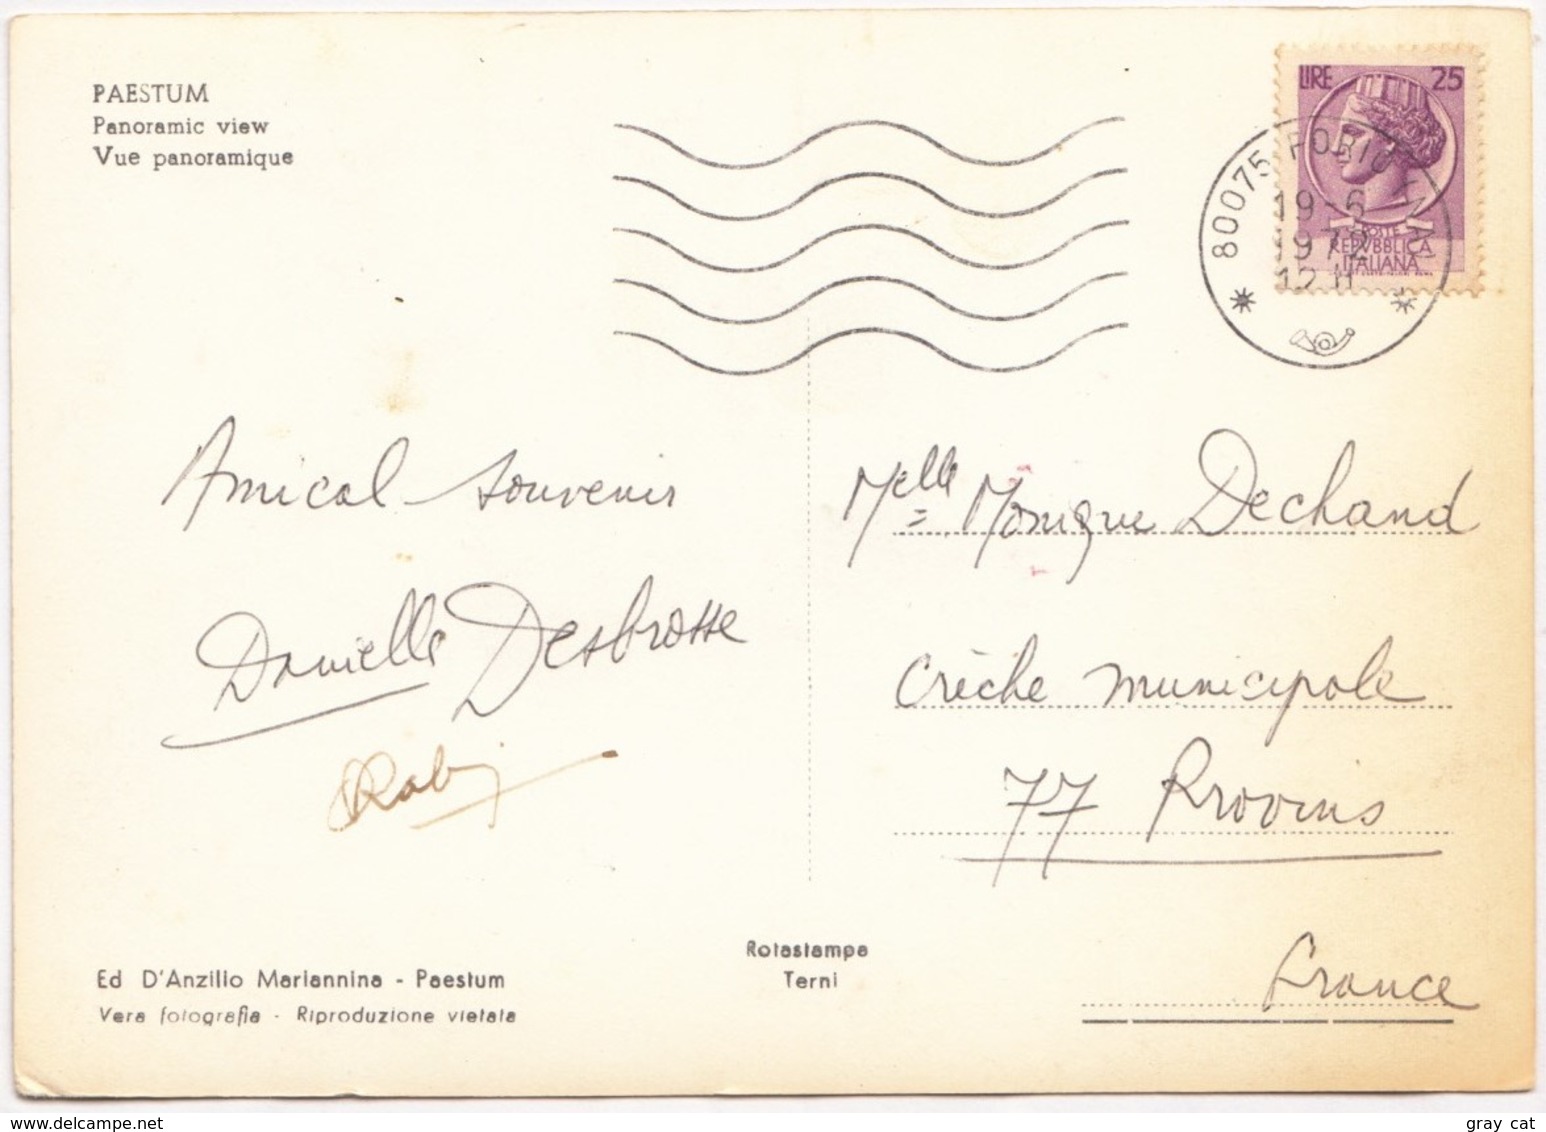 PAESTUM
Panoramic view
Vue panoramique
LIRE 25
POSTE
REPVBBLICA
ITALIANA
80075 FORIO
19-6
1972
12
Amical souvenir
Danielle Desbrosse
Melle Monique Dechand
Crèche municipale
77 Provins
France
Rotastampa
Terni
Ed D'Anzilio Mariannina - Paestum
Vera fotografia - Riproduzione vietata
www.delcampe.net
gray cat